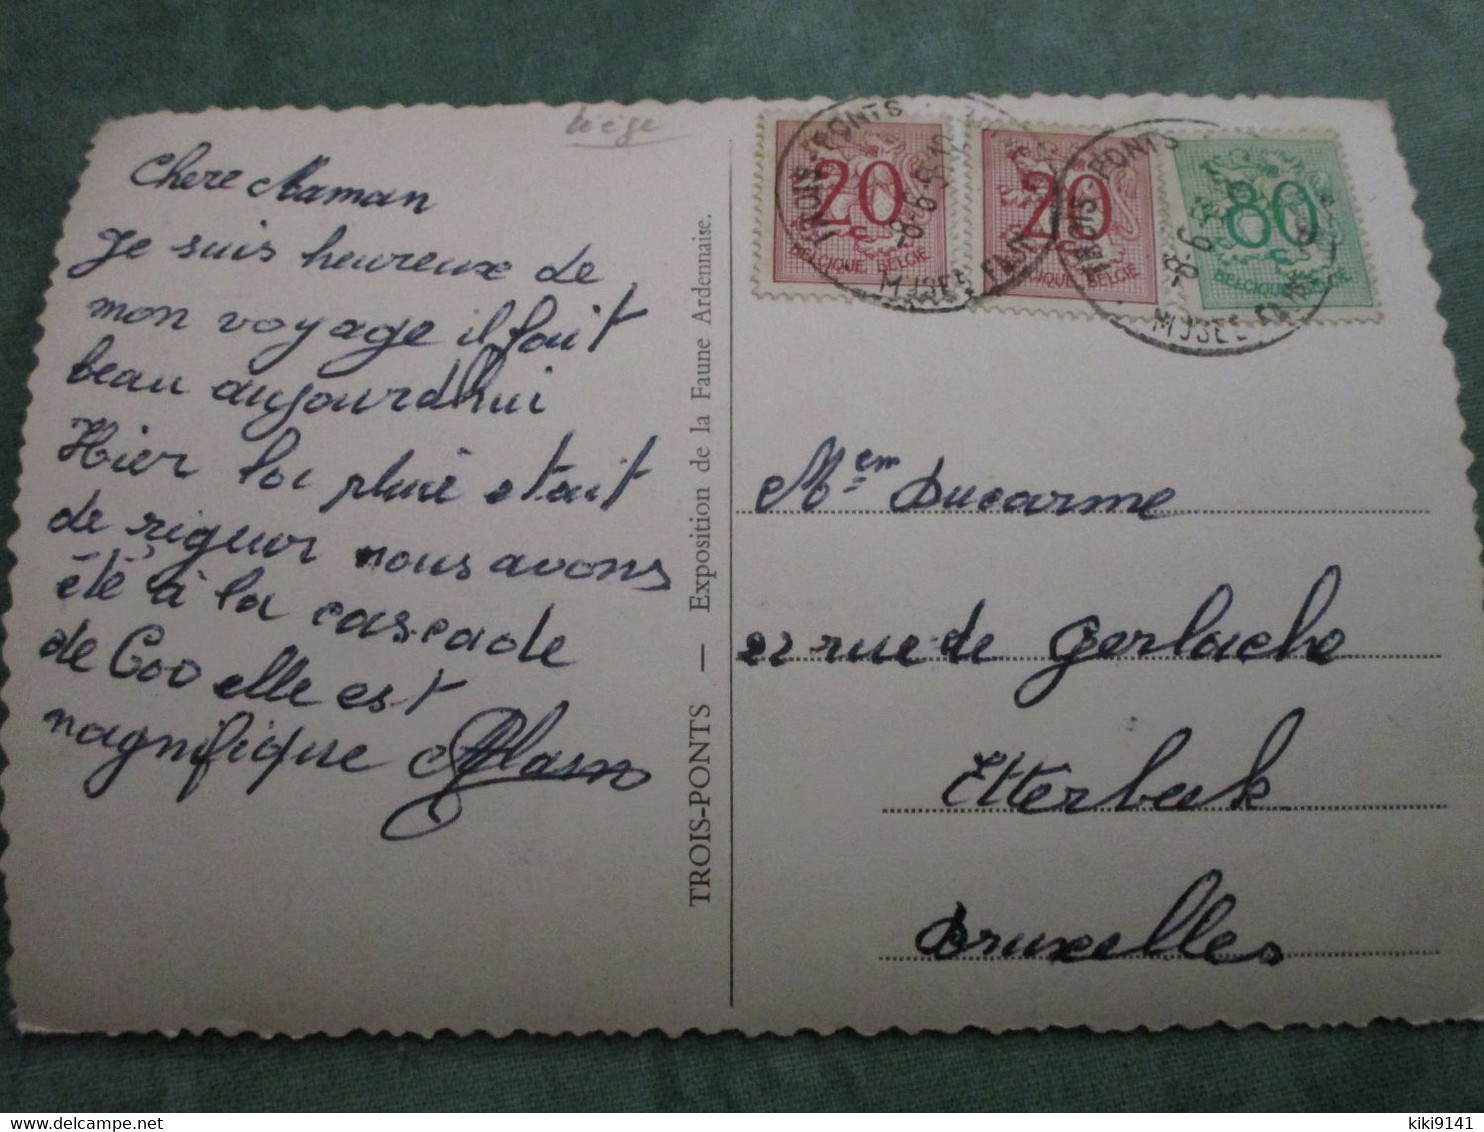 Liège
Chere Maman
Je suis heureux de
mon voyage il fait
beau aujourdhui
Hier la pluie etait
de rigueur nous avons
été à la cascade
de Coo elle est
magnifique
TROIS-PONTS — Exposition de la Faune Ardennaise.
20
BELGIQUE BELGIE
20
BELGIQUE BELGIE
80
BELGIQUE BELGIE
TROIS-PONTS
TROIS-PONTS
Mem Ducarme
22 rue de Gerlache
Etterbeek
Bruxelles
delcampe.net
kiki9141